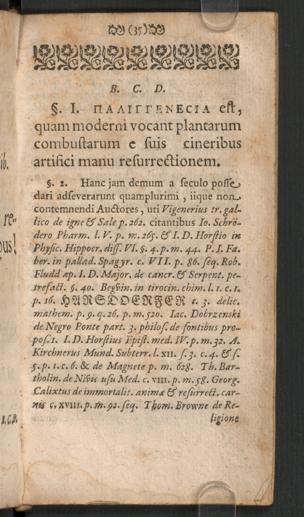 (35)
B. C. D.
§. I. ΠΑΛΙΓΓΕΝΕϹΙΑ eſt,
quam moderni vocant plantarum
combuſtarum e ſuis cineribus
artifici manu reſurrectionem.
§. 2. Hanc jam demum a ſeculo poſſe
dari adſeverarunt quamplurimi, iique non
contemnendi Auctores, uti Vigenerius tr. gal-
lico de igne & Sale p. 262. citantibus Io. Schrö-
dero Pharm. l. V. p. m. 265. & I. D. Horſtio in
Phyſic. Hippocr. diſſ. VI. §. 4. p. m. 44. P. I. Fa-
ber. in pallad. Spagyr. c. VII. p. 86. ſeq. Rob.
Fludd ap. I. D. Major. de cancr. & Serpent. pe-
trefact. §. 40. Begüin. in tirocin. chim. l. 1. c. 1.
p. 16. HARSDOERFER t. 3. delic.
mathem. p. 9. q. 26. p. m. 520. Iac. Dobrzenski
de Negro Ponte part. 3. philoſ. de fontibus pro-
poſ. 1. I. D. Horſtius Epiſt. med. IV. p. m. 32. A.
Kirchnerus Mund. Subterr. l. XII. ſ. 3. c. 4. & ſ.
5. p. 1. c. 6. & de Magnete p. m. 628. Th. Bar-
tholin. de Nivis uſu Med. c. VIII. p. m. 58. Georg.
Calixtus de immortalit. animæ & reſurrect. car-
nis c. XVIII. p. m. 92. ſeq. Thom. Browne de Re-
ligione